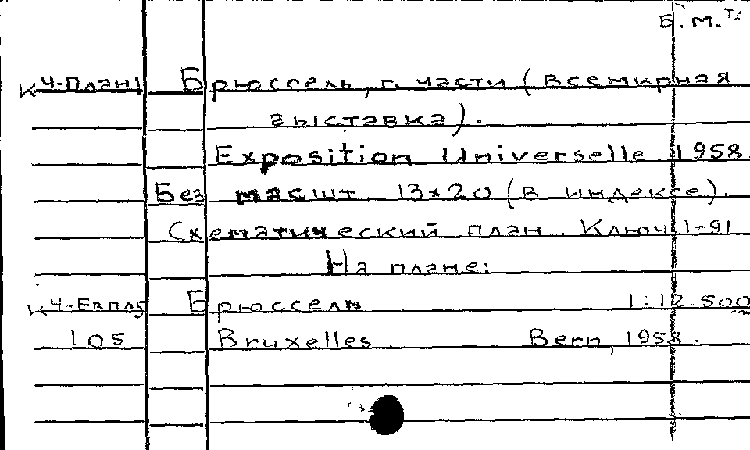 Б.М.
К Ч-План1 Брюссель, г. части (Всемирная
выставка).
Exposition Universelle 1958
Без масшт. 13×20 (в индексе).
Схематический план. Ключ 1-91
На плане:
К Ч-Европ5 Брюссель 1:12 500
105 Bruxelles Bern, 1958.